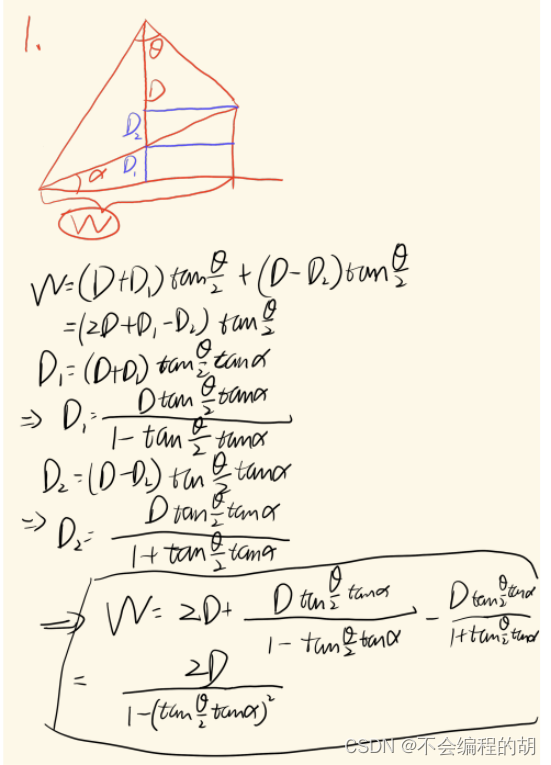 1.
θ
D
D₂
D₁
α
W
W=(D+D₁)tan θ/2 + (D-D₂)tan θ/2
=(2D+D₁-D₂) tan θ/2
D₁=(D+D₁) tan θ/2 tanα
=> D₁= (D tan θ/2 tanα)/(1- tan θ/2 tanα)
D₂=(D-D₂) tan θ/2 tanα
=> D₂= (D tan θ/2 tanα)/(1+ tan θ/2 tanα)
=> W= 2D+ (D tan θ/2 tanα)/(1- tan θ/2 tanα) - (D tan θ/2 tanα)/(1+ tan θ/2 tanα)
= 2D/(1-(tan θ/2 tanα)²)
CSDN @不会编程的胡